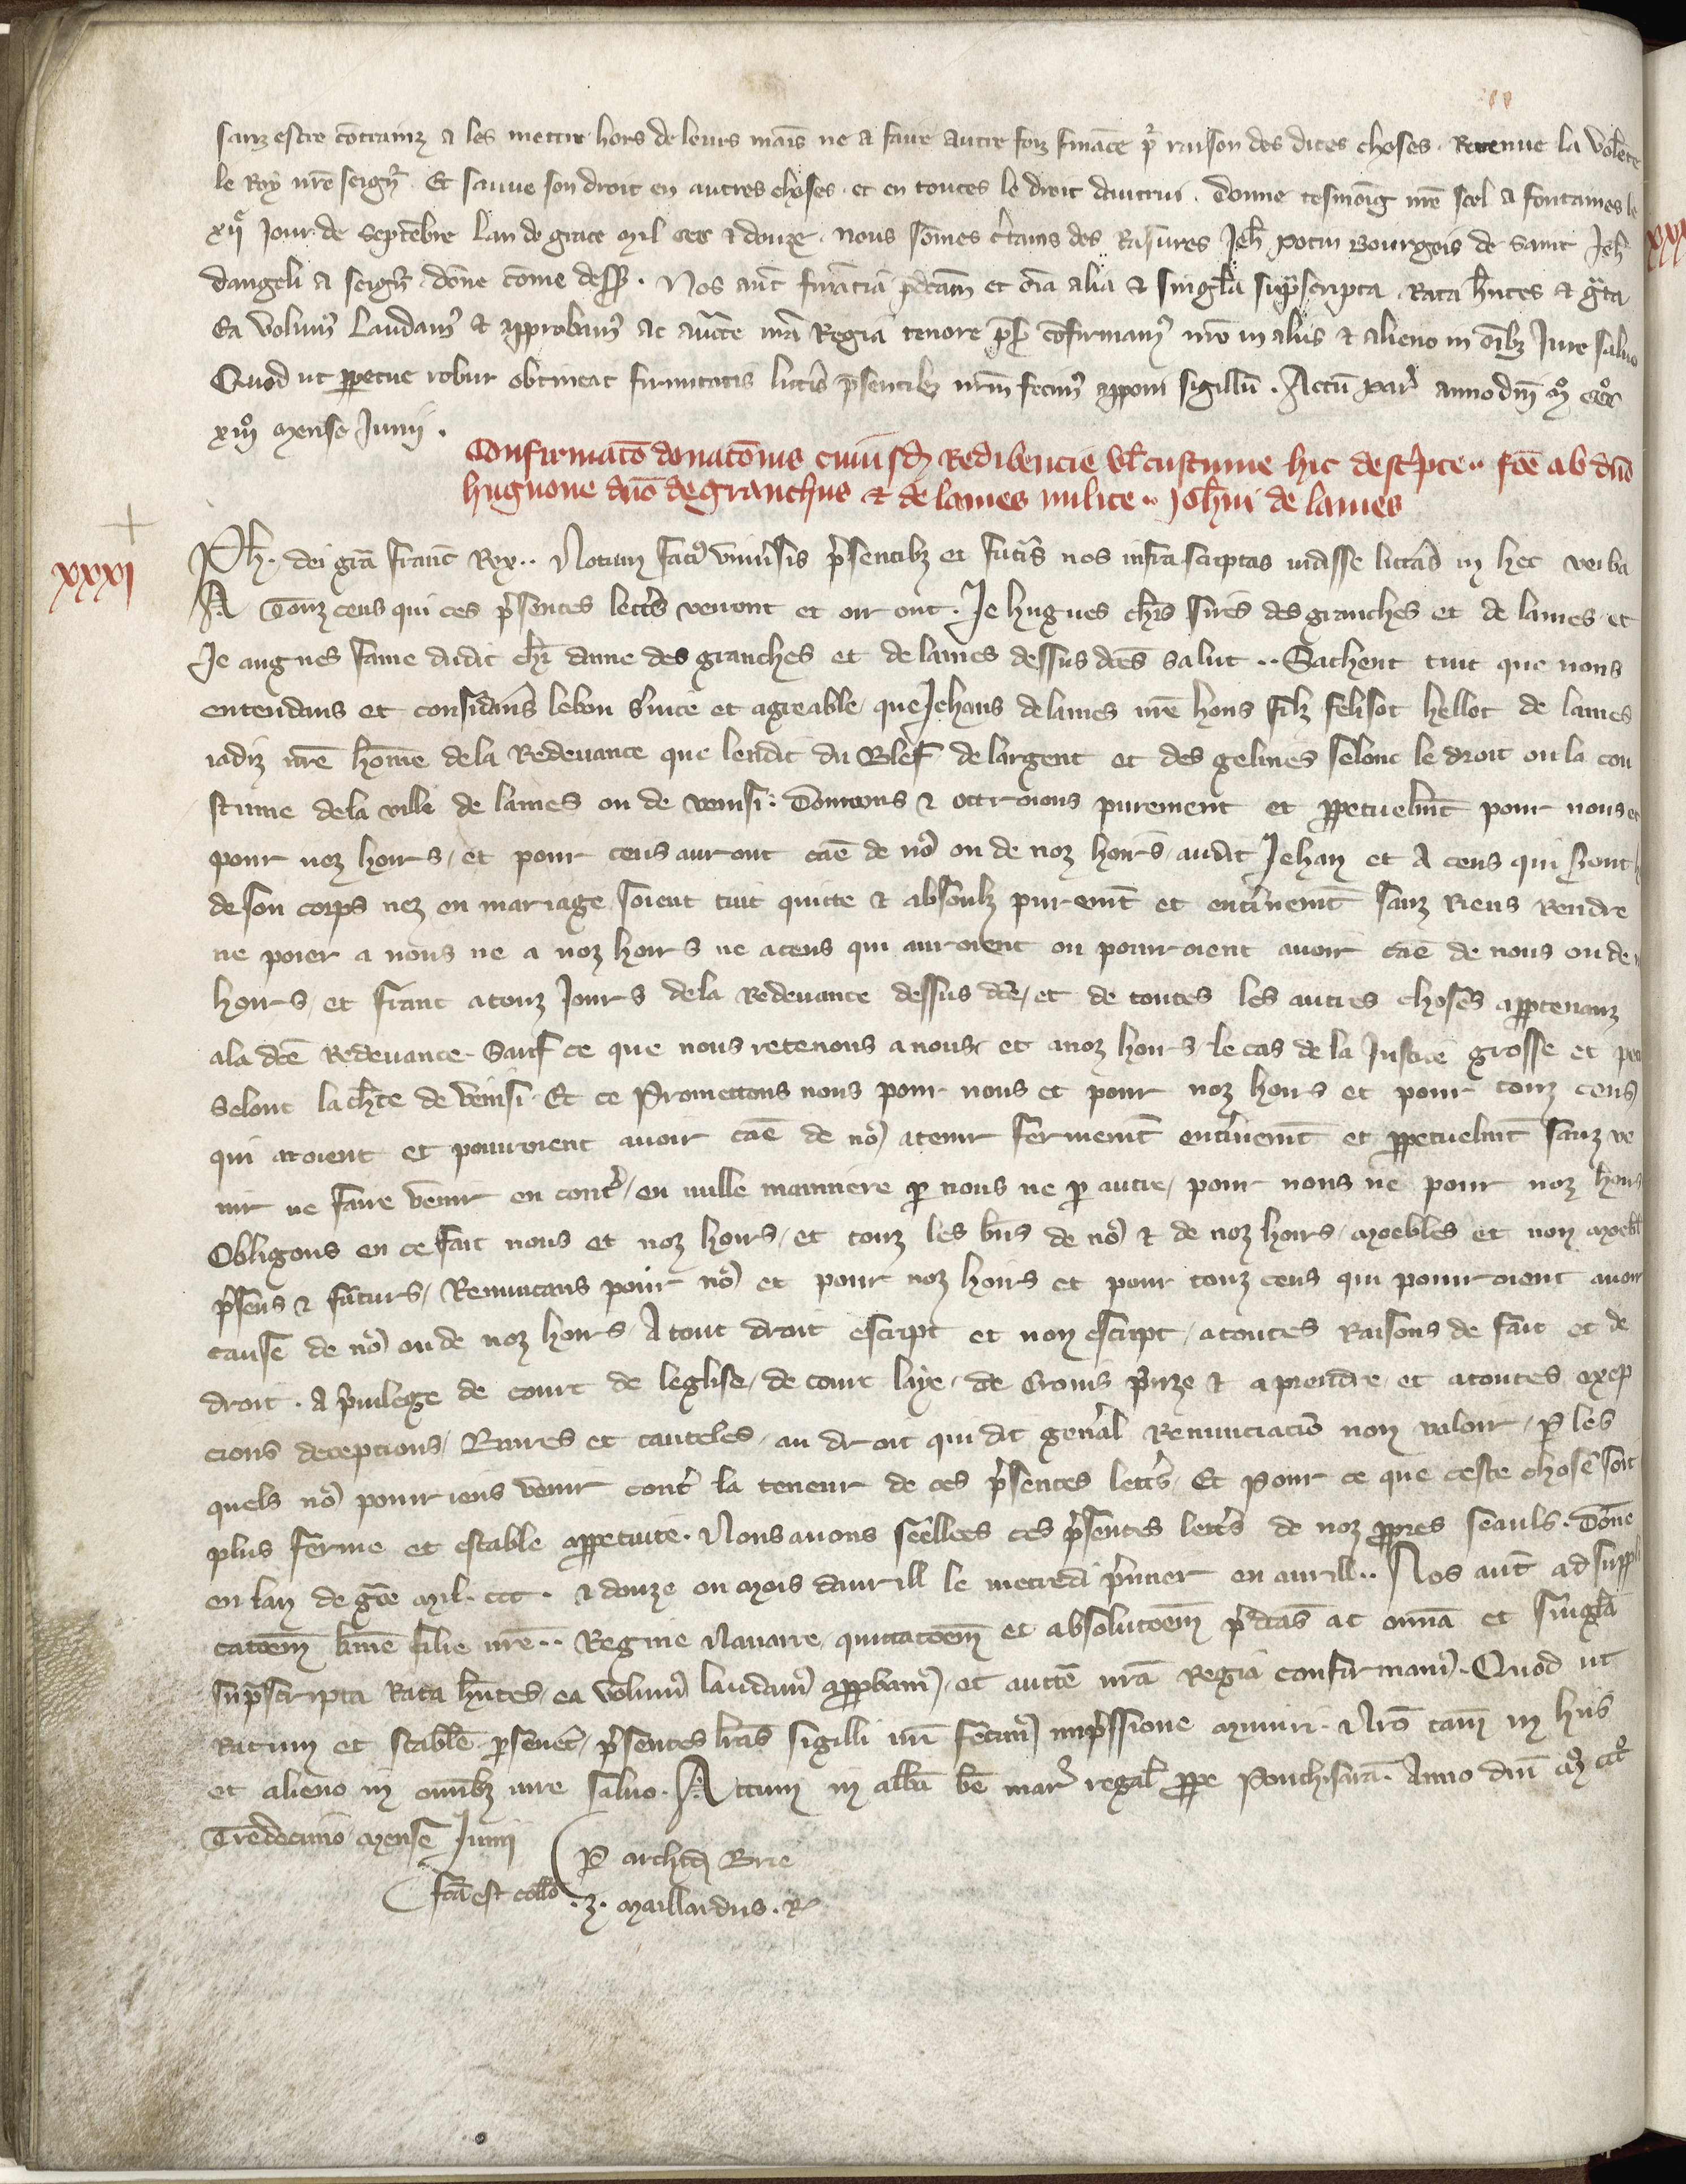 sanz estre cōtrainz a les mettre hors de leurs mais ne a faire autre foiz fināce pͬ raison des dites choses. Retenue la volēte
le Roy nr̄e seignͬ. Et sauue son droit en autres choses et en toutes le droit dautrui. Donne tesmoīg nr̄e seel a fontaines le
xij͛ Jour de Septēbre Lan de grace mil ccc & douze. Nous sōmes ctains des Rasures Jeh̄ potin Bourgois de Saint Jeh̄
dangeli a seignͬ dōne cōme dess9. Nos aut̄ finātiā pdcām et oīa alia & singl̄a sup̄scripta Rata hn̄tes & gͣta
Ea volum9 Laudam9 & approbam9 ac auct̄e nr̄a Regia tenore pn̄t cōfirmam9 nr̄o in aliis & alieno in oīb; Jure saluo
Quod ut ꝑpetue robur obtineat firmitatis litt̄is p̄sentib; nr̄m fecim9 apponi sigillū. Actū par̄ anno dn̄i mº cccº
xiijº mense Junij.
Confirmatō donatōnis cuiusd̄ Redibencie vl̄ custume hic descpte·· fc̄e ab dn̄o
hugnone dn̄o de granchiis & de lames milite·· Joh̄ni de lames
xxxj
Ph̄. dei grā franc̄ Rex·· Notum facim9 vniusis p̄sentib; et futis nos infrascriptas vidisse litt̄as in hec verba
A Touz ceus qui ces p̄sentes lett̄s verront et orront. Je hugues chr̄s sires des granches et de lames et
Je angnes fame dudit chr̄ dame des granches et de lames dessus dc̄es salut·· Sachent tuit que nous
entendans et considāns le bon suice et agreable que Jehans de lames nr̄e hons filz felisot hellot de lames
iadiz nr̄e hōme de la Redeuance que len dit du Blef de largent et des gelines selonc le droit ou la cou
stume de la ville de lames ou de venisi: Donnons & ottroions purement et ꝑpetuelmt̄ pour nous et
pour noz hoirs, et pour ceus auront cāe de no9 ou de noz hoirs audit Jehan et A ceus qui sont
de son corps nez en mariage soient tuit quicte & absoulz puremt̄ et entinemt̄ sanz Riens Rendre
ne poier a nous ne a noz hoirs ne a ceus qui auroient ou pourroient auoir cāe de nous ou de
hoirs, et franc a touz Jours de la Redeuance dessus dc̄e, et de toutes les autres choses apꝑtenanz
a la dc̄e Redeuance. Sauf ce que nous retenons a nous et a noz hoirs, le cas de la Justice grosse et
Selonc la chr̄e de venisi. Et ce Promettons nous pour nous et pour noz hoirs et pour touz ceus
qui aroient et pourroient auoir cāe de no9 a tenir fermemt̄ entinemt̄ et ꝑpetuelmt̄ sanz ve
nir ne faire venir en cont͛, en nulle manniere ꝑ nous ne ꝑ autre, pour nous ne pour noz hoirs
Obligons en ce fait nous et noz hoirs, et touz les bn̄s de no9 & de noz hoirs, moebles et non moebl
p̄sens & futurs, Renuncans pour no9 et pour noz hoirs et pour touz ceus qui pourroient auoir
cause de no9 ou de noz hoirs, A tout droit escript et non escript, a toutes Raisons de fait et de
droit. A p̄uilege de court de leglise, de court laye, de Crois p̄nze & a prendre, et a toutes excep
cions deceptions, Barres et cauteles, au droit qui dit gen͛al Renunciacio non valoir, ꝑ les
quels no9 pourriens venir cont͛ la teneur de ces p̄sentes lett̄s. Et Pour ce que ceste chose soit
plus ferme et estable aꝑpetuite. Nous auons seellees ces p̄sentes lett̄s de noz ꝓpres seauls. Dōne
en lan de gc̄e mil. ccc. & douze ou mois dauril le mecredi p̄mier en auril·· Nos aut̄ ad suppli
catōem km̄e filie nr̄e·· Regine Nauarre, quittatōem et absolutōem p̄dcās ac omia et singl̄a
sup̄scripta Rata hn̄tes, ea volum9 laudam9 apꝓbam9, et auct̄e nr̄a Regia confirmam9. Quod ut
Ratum et stabl̄e perseuet, p̄sentes lr̄as sigilli nr̄i fecim9 imp̄ssione muniri. Nr̄o tam̄ in hiis
et alieno in omib; iure saluo. Actum in abb̄ia bē mar̄ regal̄ ꝓpe Ponthisarā. Anno dn̄i mº cccº
Tredecimo mense Junij
ꝑ archid̄ Brie
fc̄a est collō
.z. maillardus. R